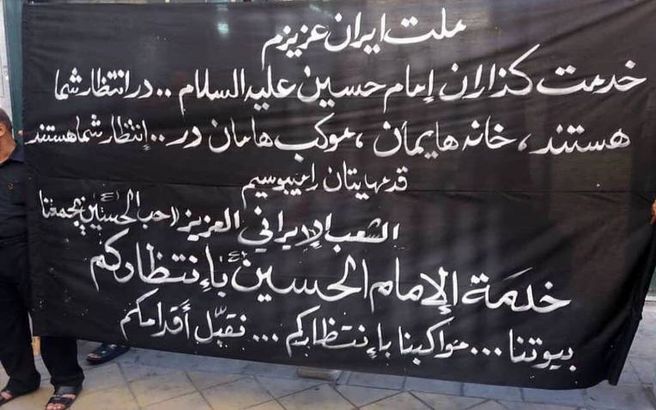 ملت ایران عزیزم
خدمت گذاران إمام حسین علیه السلام .. در انتظار شما
هستند ، خانه هایمان ، موکب هامان در .. إنتظار شما هستند
قدمهایتان را میبوسیم
الشعب الإيراني العزيز / حب الحسين (ع) يجمعنا
خدمة الإمام الحسين (ع) بإنتظاركم
بيوتنا ... مواكبنا بإنتظاركم ... نقبّل أقدامكم